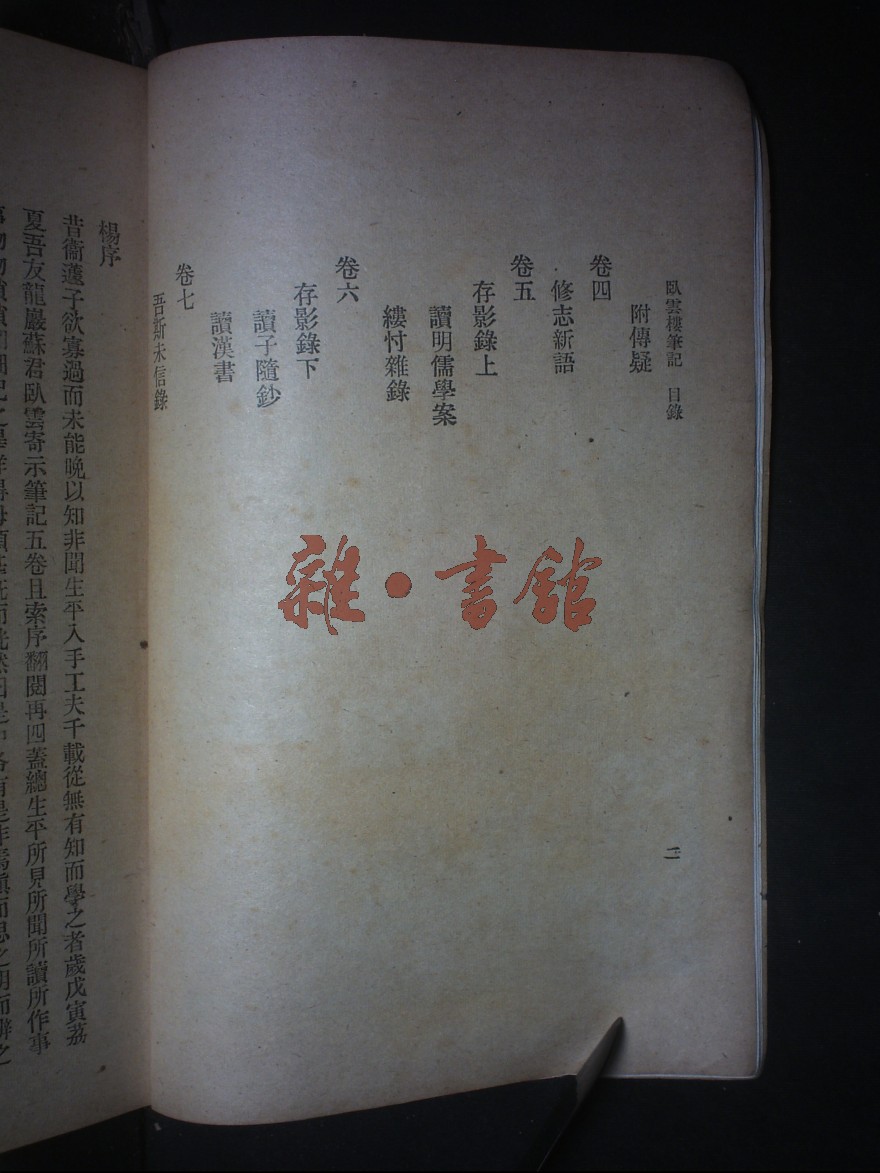 臥雲樓筆記 目錄
附傳疑
卷四
修志新語
卷五
存影錄上
讀明儒學案
縷忖雜錄
卷六
存影錄下
讀子隨鈔
讀漢書
卷七
吾斯未信錄
二
雜·書館
楊序
昔衞蘧子欲寡過而未能晚以知非聞生平入手工夫千載從無有知而學之者歲戊寅荔
夏吾友龍巖蘇君臥雲寄示筆記五卷且索序翻閱再四蓋總生平所見所聞所讀所作事